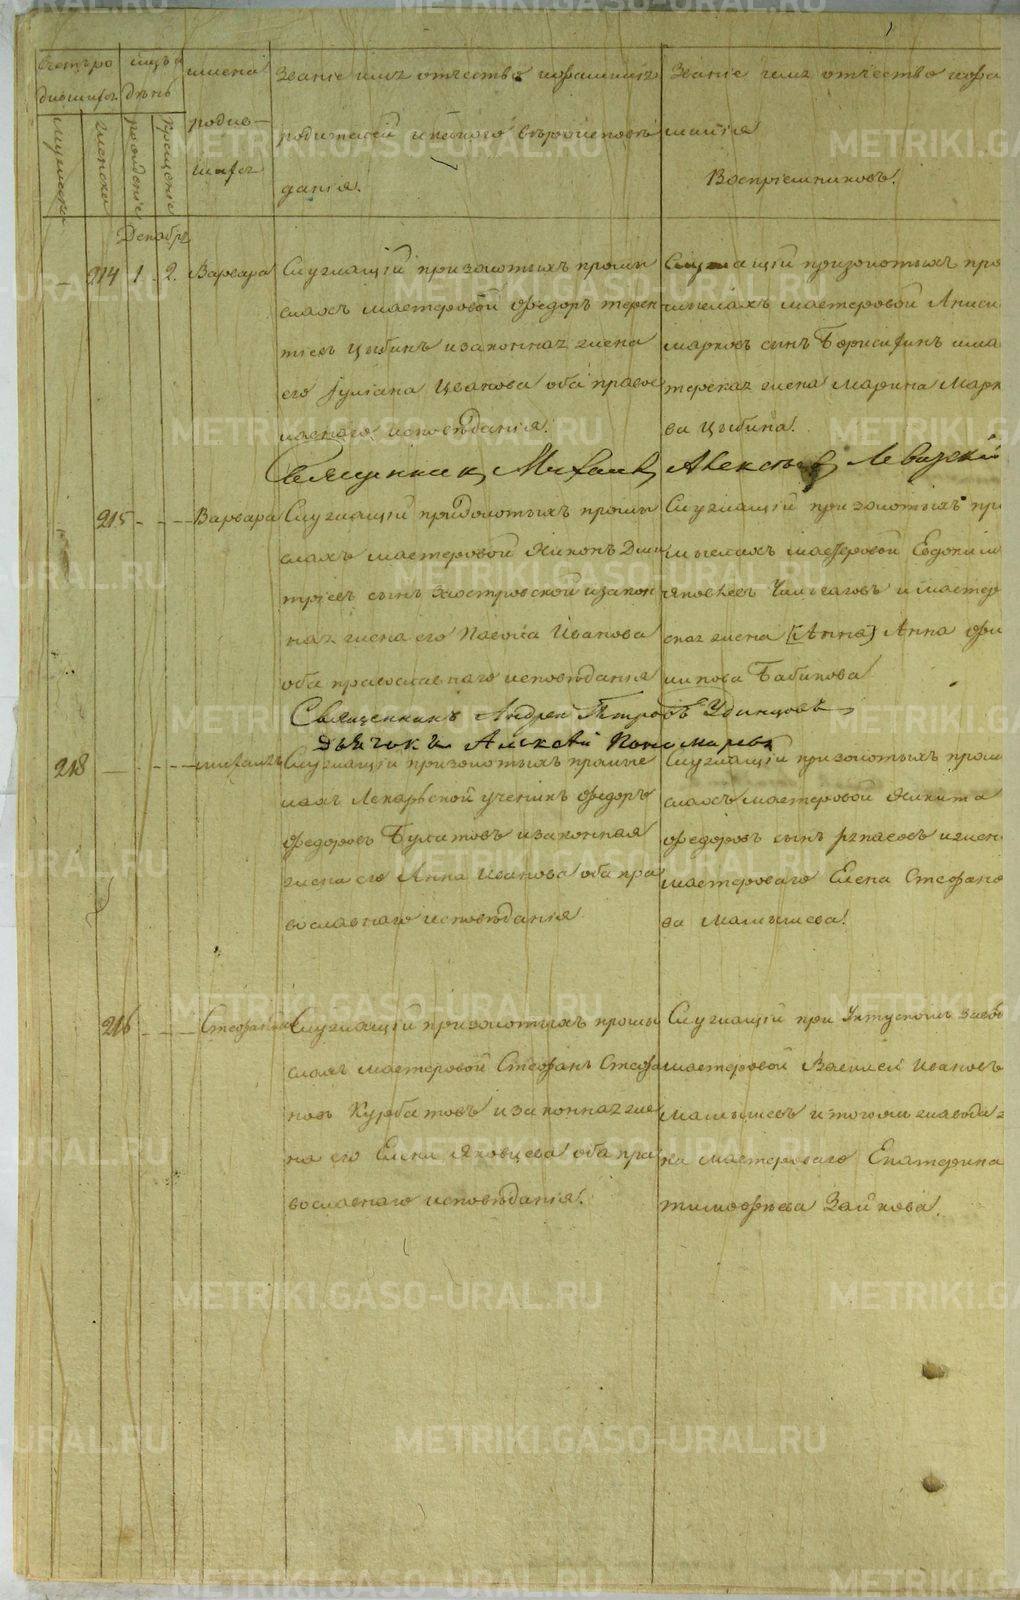 Счетъ ро
дившихся
мужеска
женска
мцъ и
день
рожденіе
крещеніе
имена
родив-
шихся
Званіе имя отчество и фамилія
родителей и какого вѣроисповѣ
данія.
Званіе имя отчество и фами
лия
Воспріемниковъ.
Декабрь
214 1. 2. Варвара
Служащій при золотыхъ промы
слахъ мастеровой Федоръ Терен
тіевъ Цыбинъ и законная жена
его Іуліана Иванова оба правос
лавнаго исповѣданія.
Служащій при золотыхъ про
мыслахъ мастеровой Аниси
Марковъ сынъ и ма
стерская жена Марина Марк
ва Цыбина.
Священникъ Михаилъ Алексѣевъ Левицкій
215 - - - Варвара
Служащій при золотыхъ промы
слахъ мастеровой Никонъ Дми
тріевъ сынъ Заостровской и закон
ная жена его Павла Иванова
оба православнаго исповѣданія
Служащій при золотыхъ про
мыслахъ мастеровой Евдоким
Яковлевъ и мастер
ская жена [Анна] Анна Фи
липова Бабикова
Священникъ Андрей Петровъ Удинцовъ
Дьячокъ Алексѣй Пономаревъ
218 - - - Михаилъ
Служащій при золотыхъ промы
слахъ Лекарьской ученикъ Федоръ
Федоровъ Булатовъ и законная
жена его Анна Иванова оба пра
вославнаго исповѣданія
Служащій при золотыхъ пром
слахъ мастеровой Никита
Федоровъ сынъ и жен
мастероваго Елена Стефано
ва Малышева.
216 - - - Стефанида
Служащій при золотыхъ промы
слахъ мастеровой Стефанъ Стефа
новъ Курбатовъ и законная же
на его Елена Яковлева оба пра
вославнаго исповѣданія.
Служащій при Уктускомъ заво
мастеровой Василей Ивановъ
Малышевъ и того ж завода ж
на мастероваго Екатерина
Тимофѣева Зайкова.
METRIKI.GASO-URAL.RU